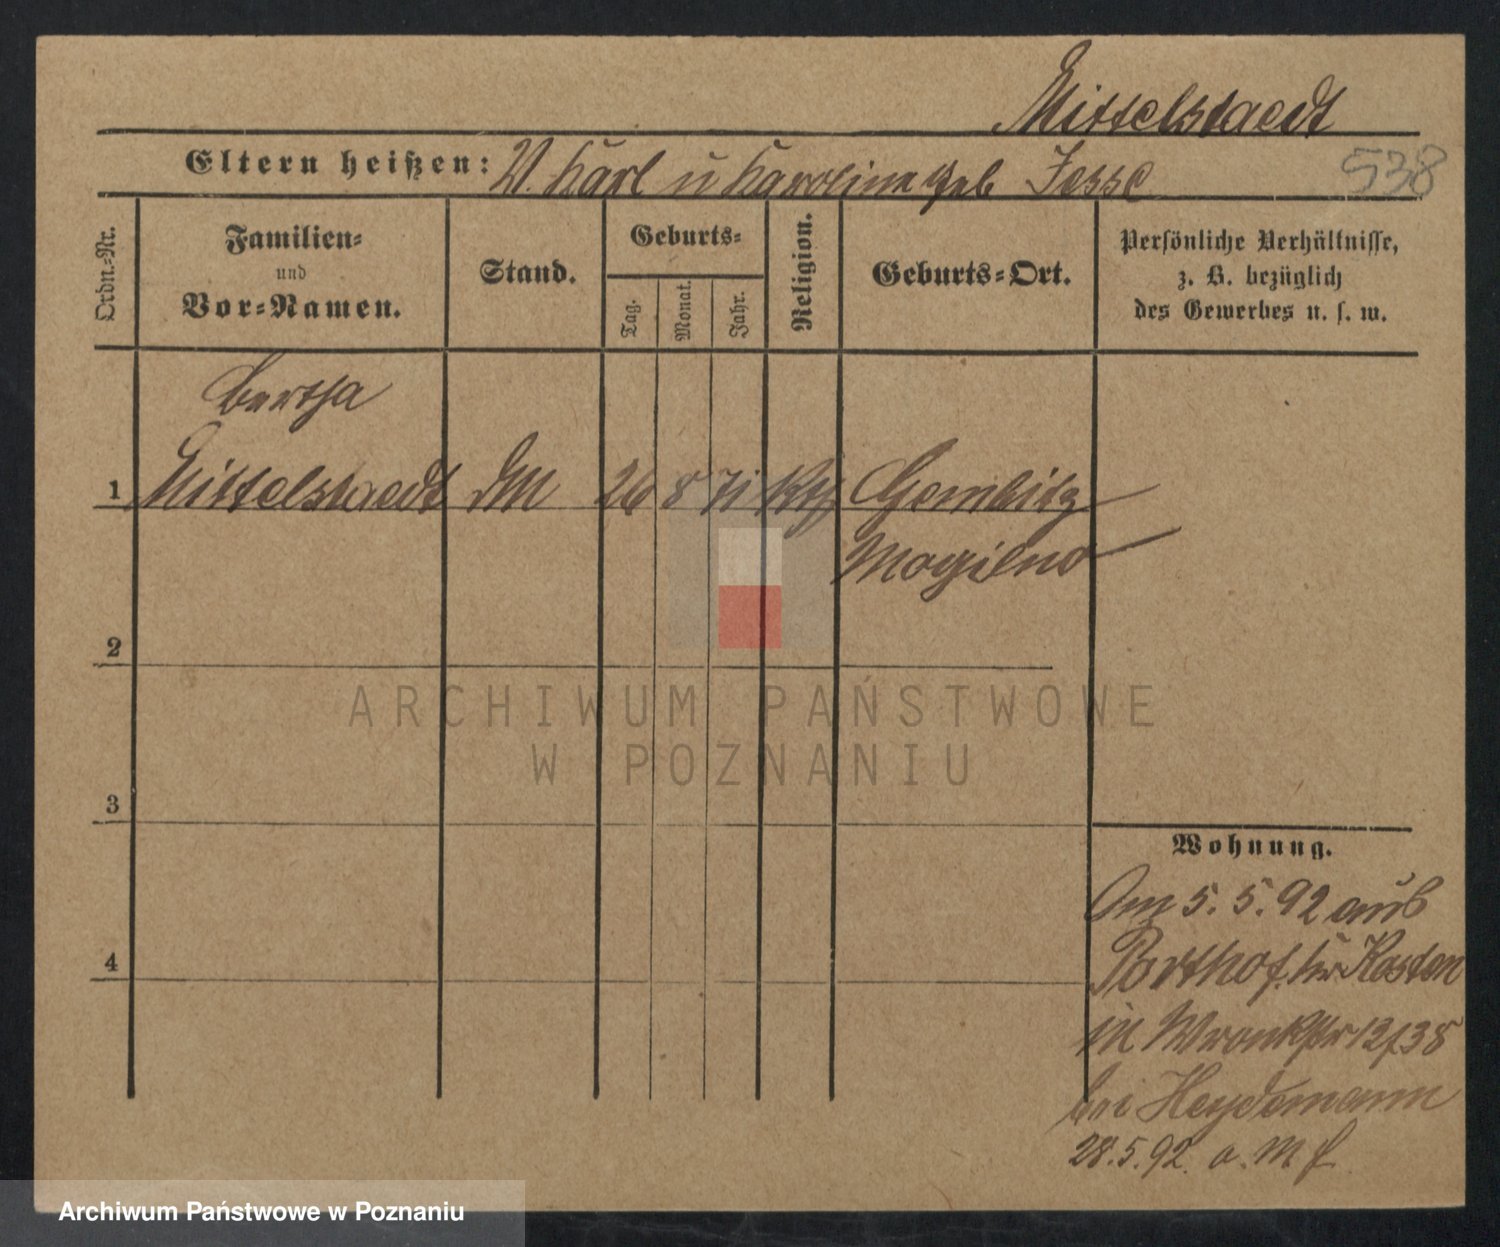 Mittelstaedt
Eltern heißen: V. Karl u Karoline geb Jesse
538
Ordn.-Nr.
Familien-
und
Vor-Namen.
Stand.
Geburts-
Tag.
Monat.
Jahr.
Religion.
Geburts-Ort.
Persönliche Verhältnisse,
z. B. bezüglich
des Gewerbes u. s. w.
Bertha
1 Mittelstaedt DM 26 8 71 Kth Gembitz
Mogilno
2
ARCHIWUM PAŃSTWOWE
W POZNANIU
3
Wohnung.
Am 5. 5. 92 aus
4
Kosten
in Wronkstr 12/38
bei Heydemann
28.5.92. a.
Archiwum Państwowe w Poznaniu